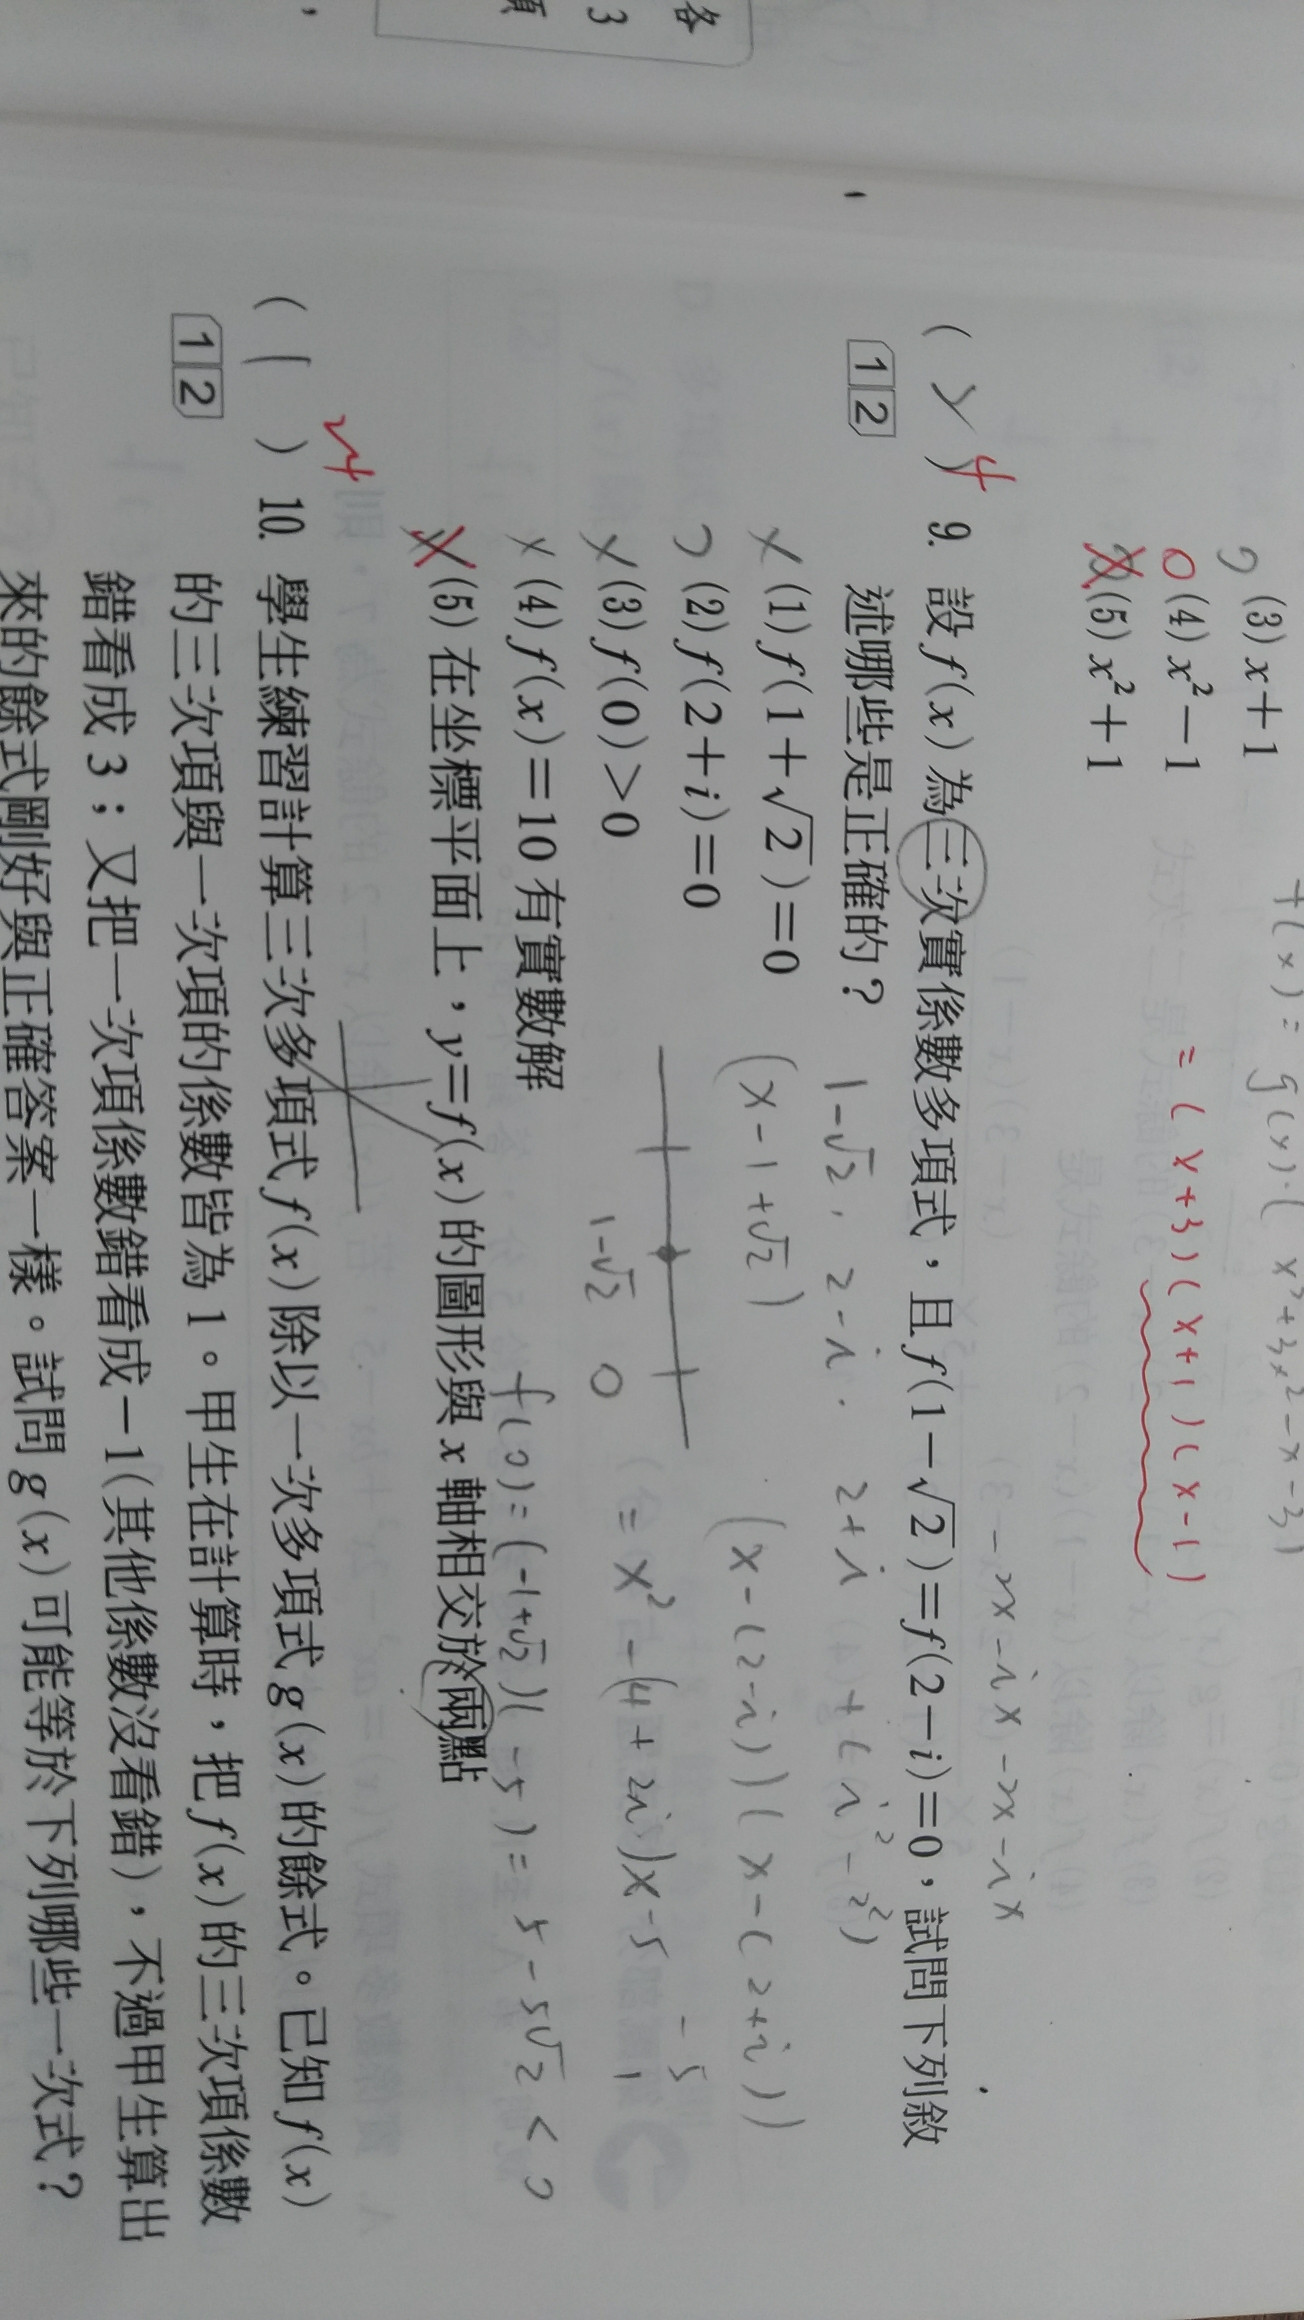 (3) x+1
(4) x²-1
(5) x²+1
= (x+3)(x+1)(x-1)
9. 設 f(x) 為三次實係數多項式，且 f(1-√2)=f(2-i)=0，試問下列敘
12
述哪些是正確的？
1-√2, 2-i. 2+i
(1) f(1+√2)=0
(x-1+√2)
(x-(2-i))(x-(2+i))
(2) f(2+i)=0
(3) f(0)>0
1-√2 0
= x²-(4+2i)x-5
(4) f(x)=10 有實數解
f(0)=(-1+√2)(-5)= 5-5√2<0
(5) 在坐標平面上，y=f(x) 的圖形與 x 軸相交於兩點
24
(1) 10. 學生練習計算三次多項式 f(x) 除以一次多項式 g(x) 的餘式。已知 f(x)
12
的三次項與一次項的係數皆為 1。甲生在計算時，把 f(x) 的三次項係數
錯看成 3；又把一次項係數錯看成 -1(其他係數沒看錯)，不過甲生算出
來的餘式剛好與正確答案一樣。試問 g(x) 可能等於下列哪些一次式？